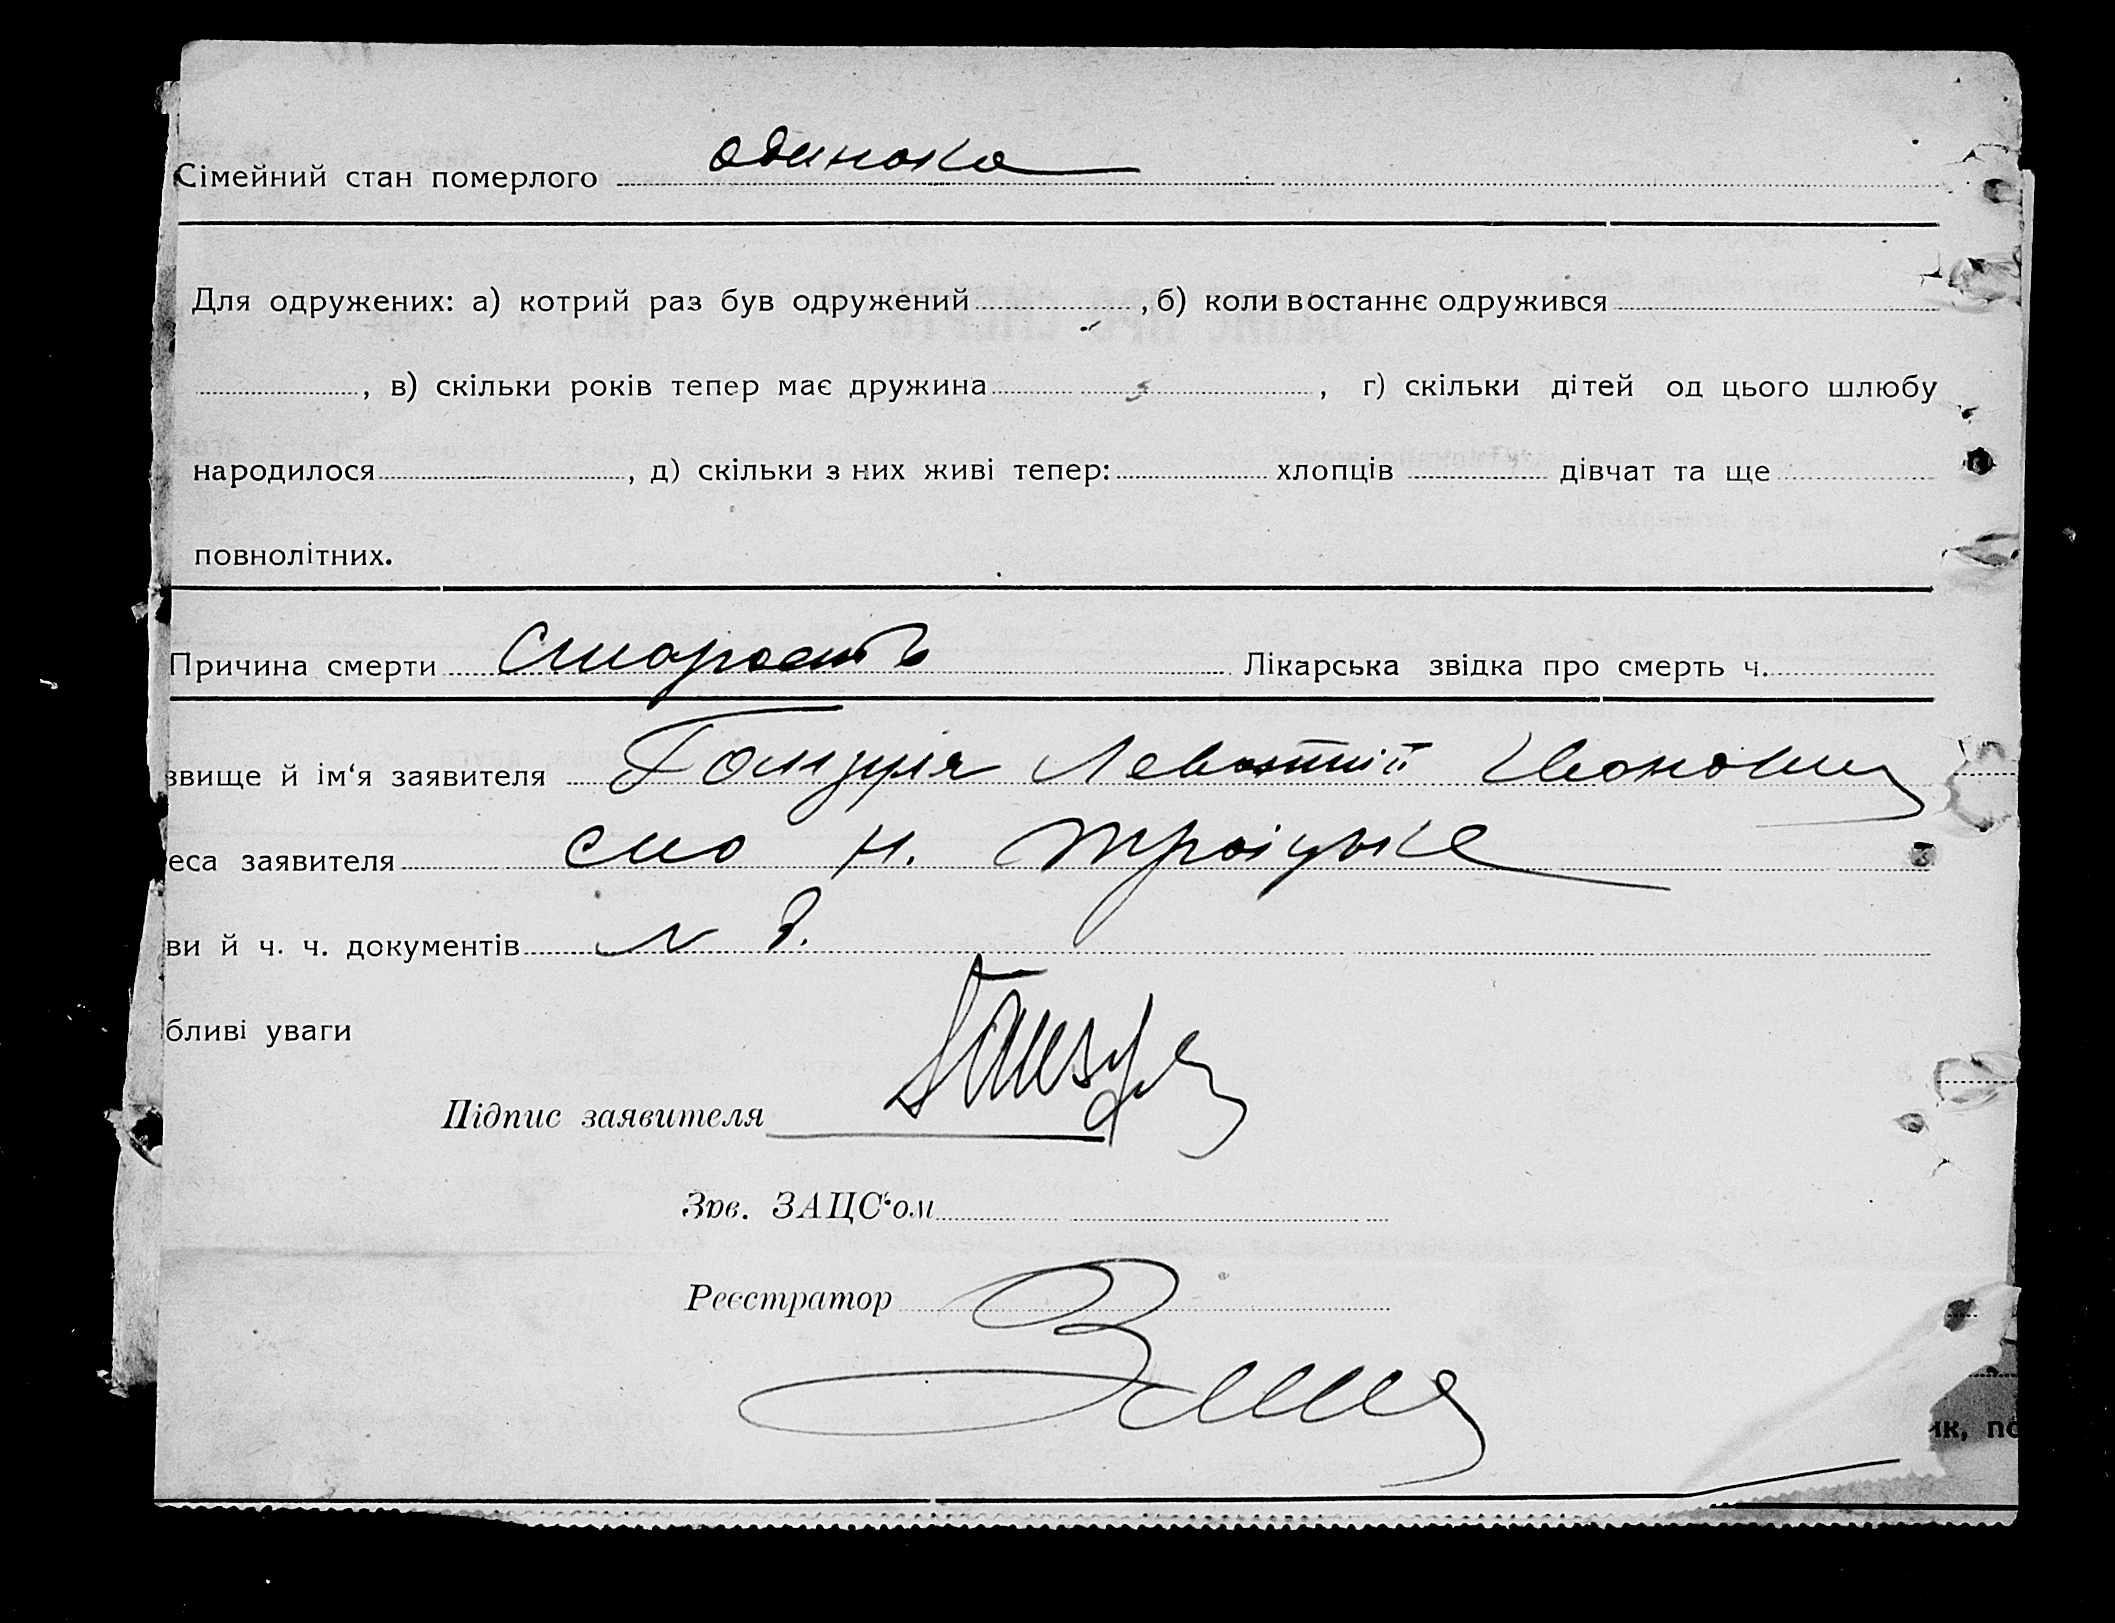 Сімейний стан померлого одинока
Для одружених: а) котрий раз був одружений , б) коли востаннє одружився
, в) скільки років тепер має дружина , г) скільки дітей од цього шлюбу
народилося , д) скільки з них живі тепер: хлопців дівчат та ще
повнолітних.
Причина смерти Старость Лікарська звідка про смерть ч.
звище й ім‘я заявителя
еса заявителя село Н. Троіцьке
ви й ч. ч. документів
бливі уваги
Підпис заявителя
Зав. ЗАЦС‘ом
Реєстратор
ик, по